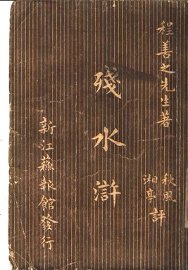 程善之先生著
秋風
湘亭 評
殘水滸
新江蘇報館發行